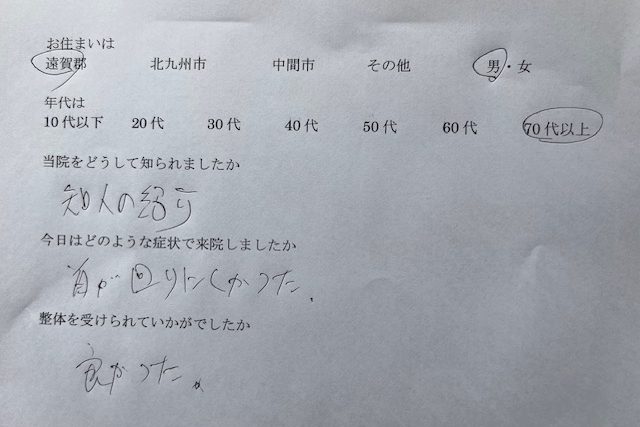 お住まいは
遠賀郡 北九州市 中間市 その他 男・女
年代は
10代以下 20代 30代 40代 50代 60代 70代以上
当院をどうして知られましたか
知人の紹介
今日はどのような症状で来院しましたか
首が回りにくかった。
整体を受けられていかがでしたか
良かった。